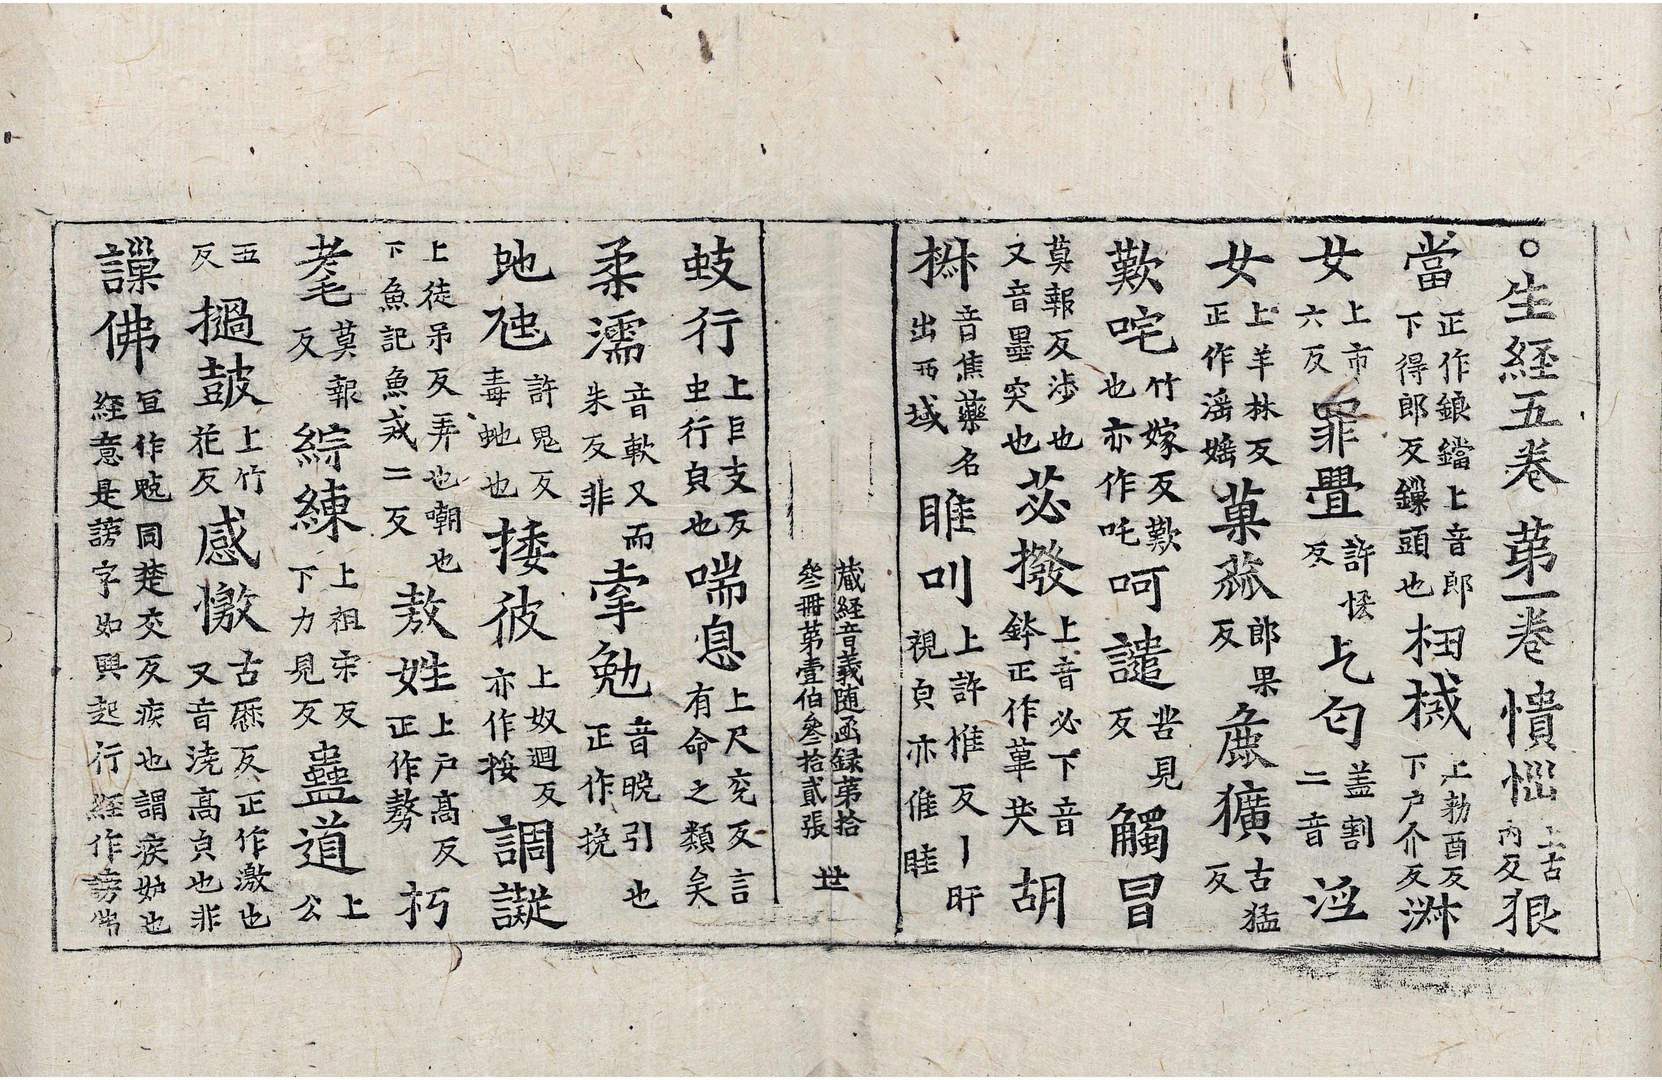 ○生経五巻 第一巻 憒㤥上古內反 狠
當正作鋃鐺上音郎下得郎反鏁頭也 杻械上勑酉反下户介反 㳤
女上市六反 罪舋許慭反 乞匂盖割二音 滛
女上羊林反正作滛媱 菓蓏郎果反 麁獷古猛反
歎咤竹嫁反歎也亦作吒呵 譴苦見反 觸冒
莫報反涉也又音墨突也 苾撥上音必下音鉢正作蓽茇 胡
椒音焦藥名出西域 睢叫上許惟反丨盱視皃亦倠眭
蔵経音義随函録第拾叄冊第壹伯叄拾貳張 世
蚑行上巨支反虫行皃也 喘息上尺兖反言有命之類矣
柔濡音軟又而朱反非 牽勉音晚引也正作挽
虵虺許鬼反毒虵也 捼彼上奴迴反亦作挼 調譺
上徒吊反弄也嘲也下魚記魚戒二反 敖姓上户高反正作勢 朽
耄莫報反 綜練上祖宋反下力見反 蠱道上公
五反 撾鼓上竹花反 感憿古歷反正作激也又音澆高皃也非
謿佛冝作㲋同楚交反疾也謂疾妒也経意是謗字如興起行経作謗佛